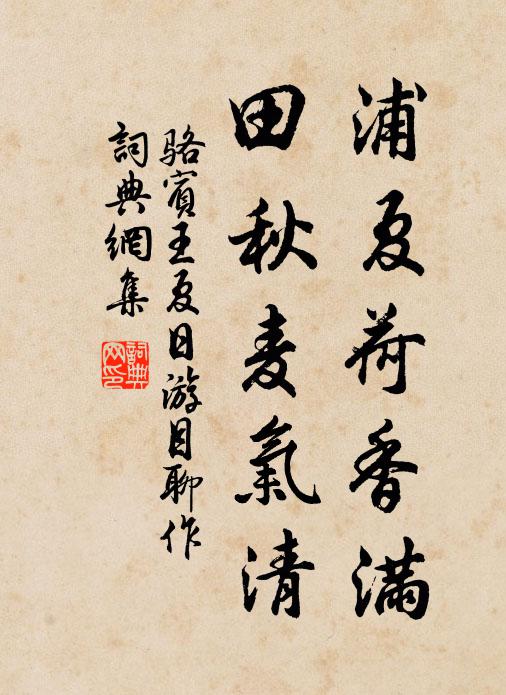 浦夏荷香滿
田秋麦氣清
駱賓王夏日游目聊作
詞典網集
詞典网印